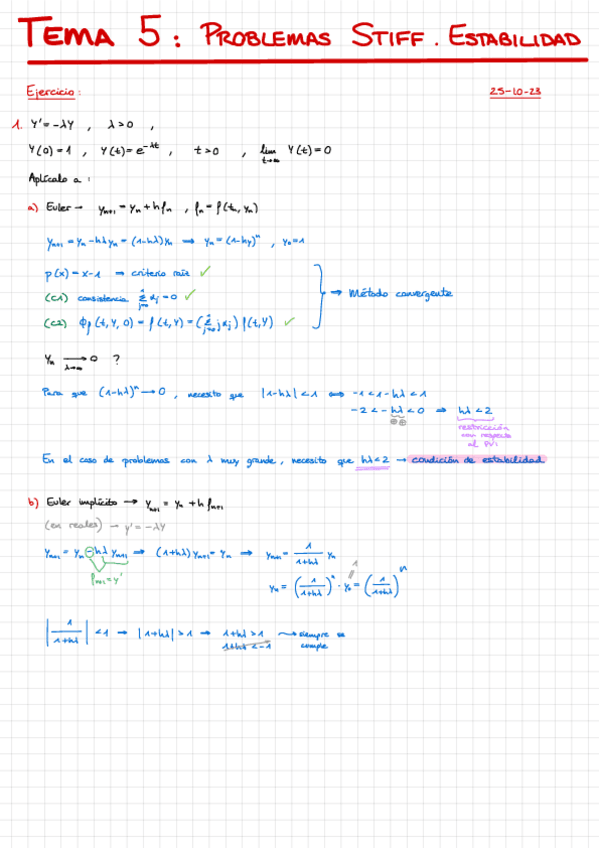 TEMA 5: PROBLEMAS STIFF. ESTABILIDAD
Ejercicio:
25-10-23
1. Y' = -λY , λ>0 ,
Y(0)=1 , Y(t)=e^{-λt} , t>0 , lim_{t→∞} Y(t)=0
Aplícalo a:
a) Euler → y_{n+1} = y_n + h f_n , f_n = f(t_n, y_n)
y_{n+1} = y_n - hλy_n = (1-hλ)y_n ⇒ y_n = (1-hy)^n , y_0=1
p(x) = x-1 ⇒ criterio raíz ✓
(C1) consistencia Σ_{j=0} α_j = 0 ✓
(C2) Φ_f (t, Y, 0) = f(t, Y) = (Σ_{j=0} j α_j) f(t,Y) ✓
→ Método convergente
Y_n → 0 ?
λ→∞
Para que (1-hλ)^n → 0 , necesito que |1-hλ| < 1 ⇔ -1 < 1-hλ < 1
-2 < -hλ < 0 ⇒ hλ < 2
⊕⊕
restricción
con respecto
al PVI
En el caso de problemas con λ muy grande, necesito que hλ<2 → condición de estabilidad
b) Euler implícito → y_{n+1} = y_n + h f_{n+1}
(en reales) → y' = -λY
y_{n+1} = y_n ⊖ hλ y_{n+1} ⇒ (1+hλ) y_{n+1} = y_n ⇒ y_{n+1} = 1/(1+hλ) y_n
f_{n+1} = y'
1
y_n = (1/(1+hλ))^n · y_0 = (1/(1+hλ))^n
|1/(1+hλ)| < 1 → |1+hλ| > 1 → 1+hλ > 1 → siempre se
1+hλ < -1 cumple